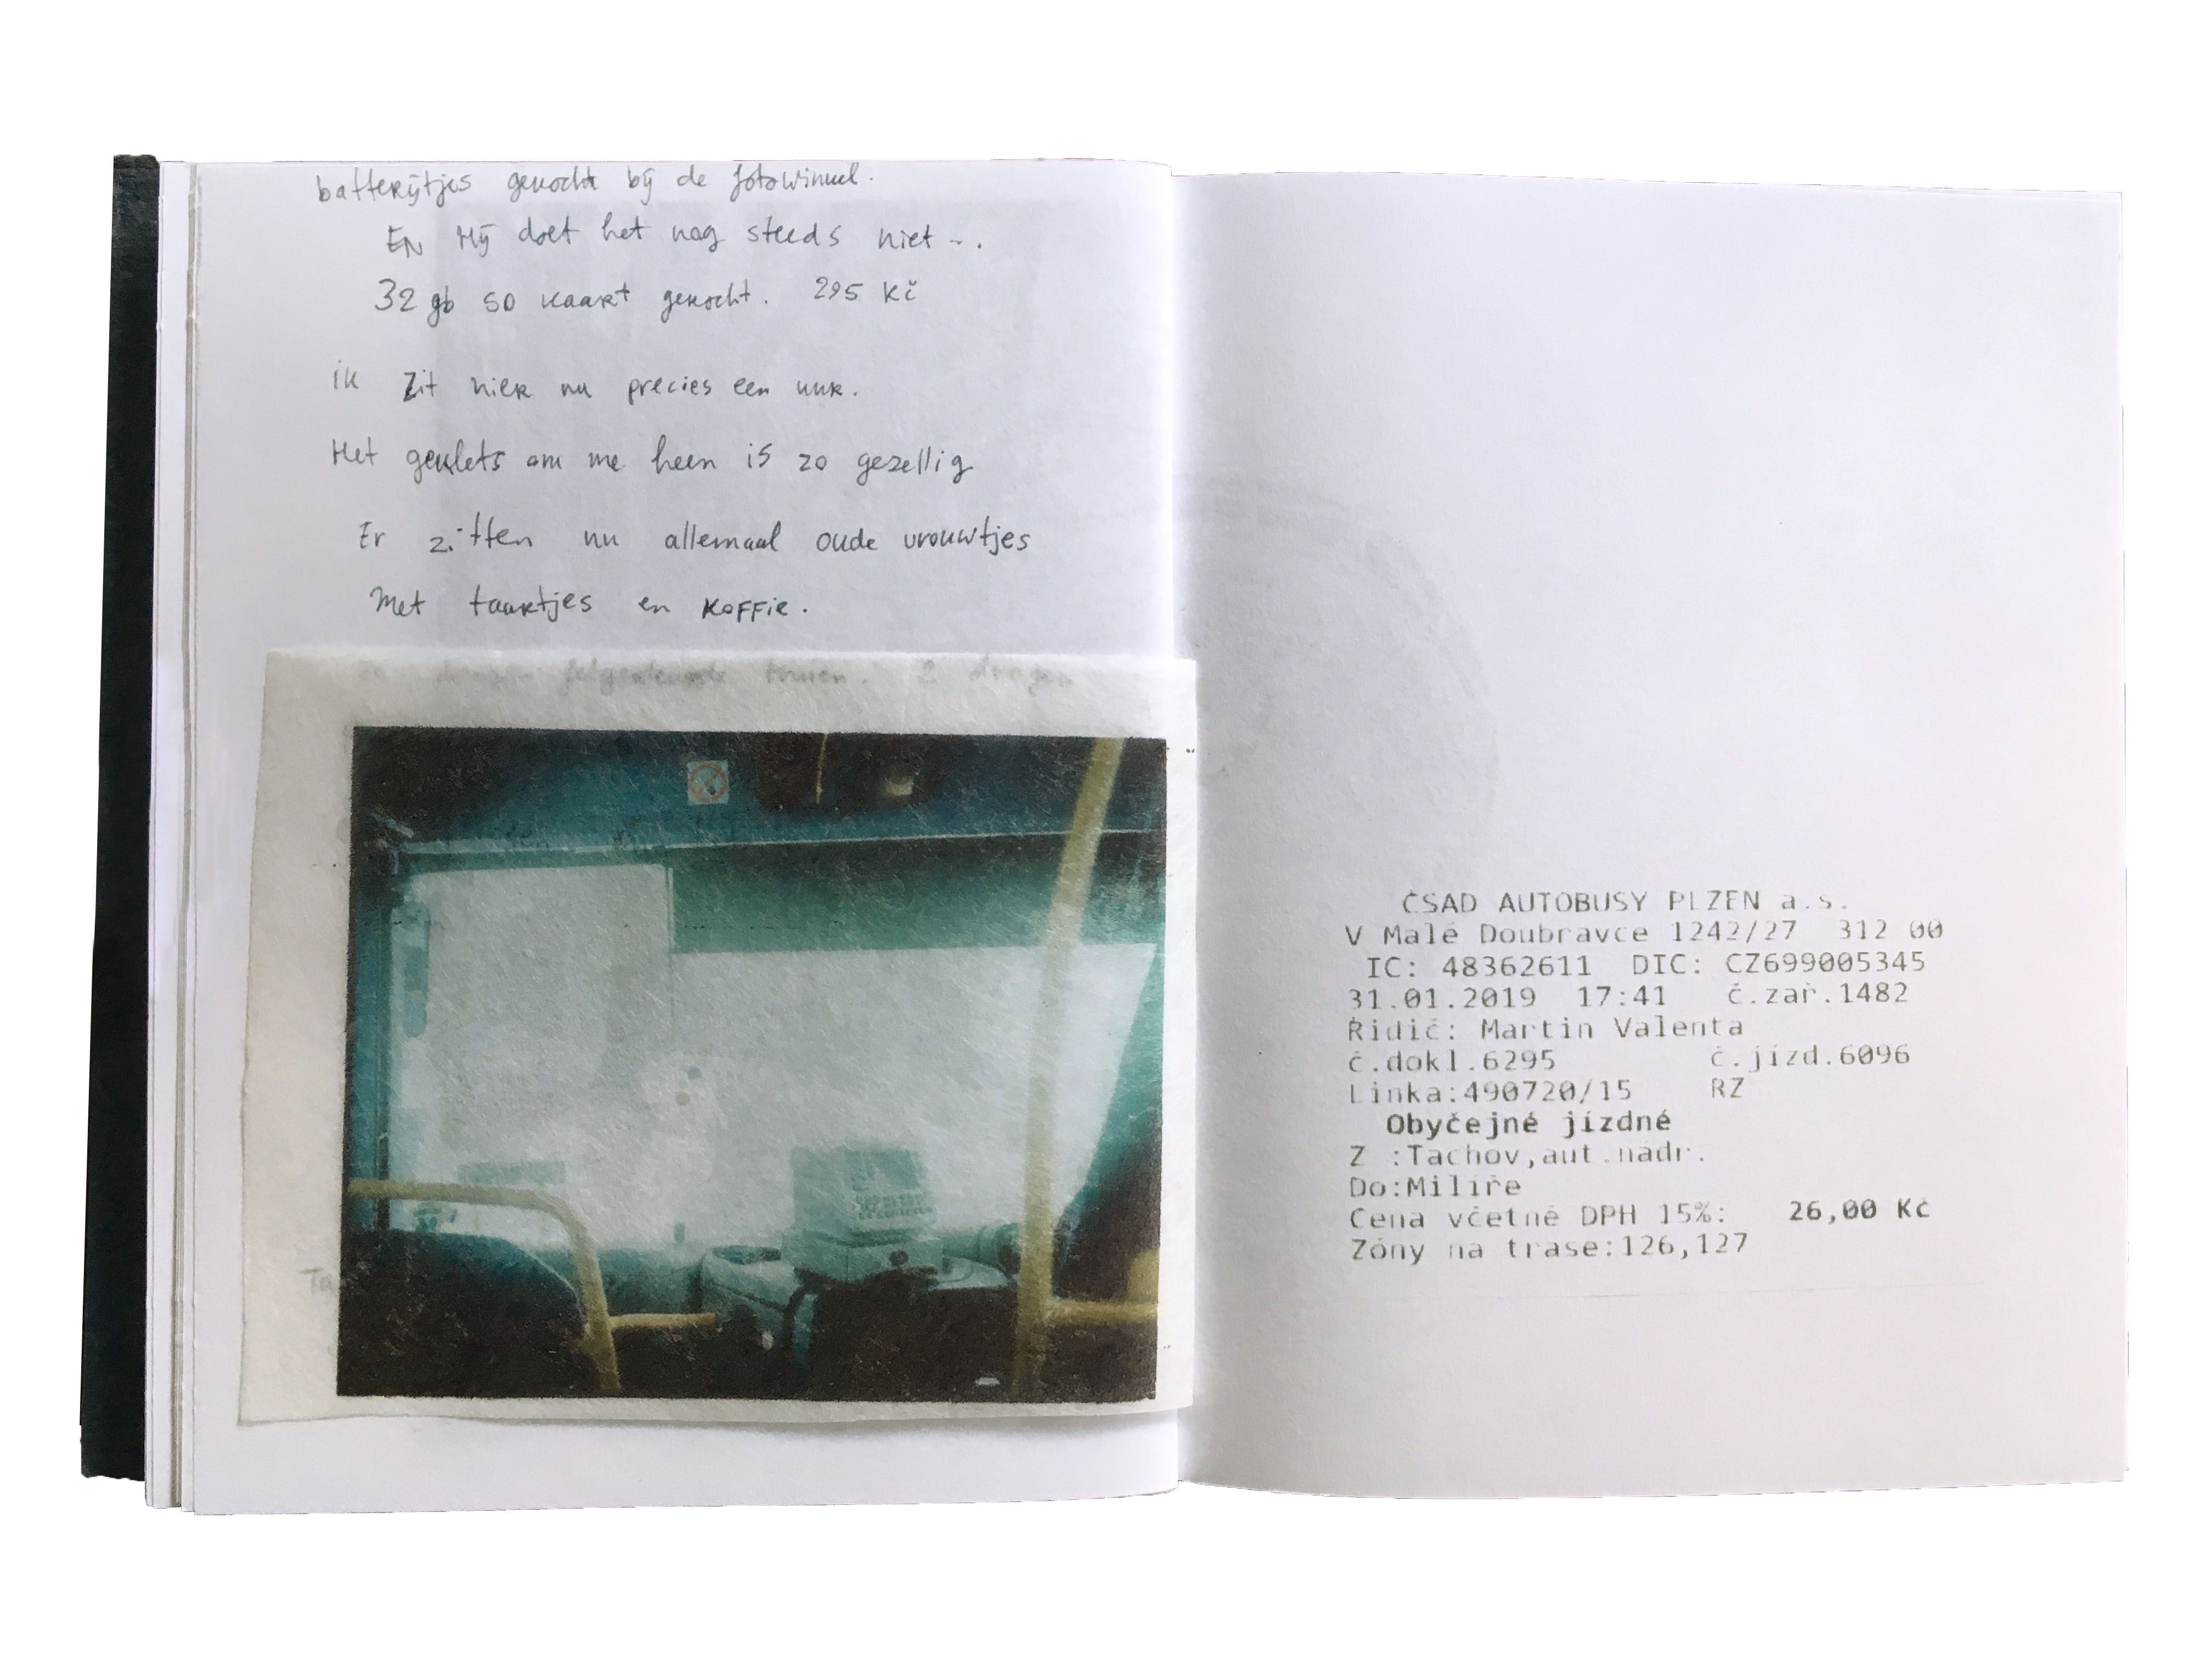 batterijtjes gekocht bij de fotowinkel.
EN Hij doet het nog steeds niet -.
32 gb SD kaart gekocht. 295 Kč
ik zit hier nu precies een uur.
Het geklets om me heen is zo gezellig
Er zitten nu allemaal oude vrouwtjes
Met taartjes en koffie.
truien. 2 dragen
Ta
ČSAD AUTOBUSY PLZEN a.s.
V Malé Doubravce 1242/27 312 00
IC: 48362611 DIC: CZ699005345
31.01.2019 17:41 č.zař.1482
Řidič: Martin Valenta
č.dokl.6295 č.jízd.6096
Linka:490720/15 RZ
Obyčejné jízdné
Z :Tachov,aut.nádr.
Do:Milíře
Cena včetně DPH 15%: 26,00 Kč
Zóny na trase:126,127